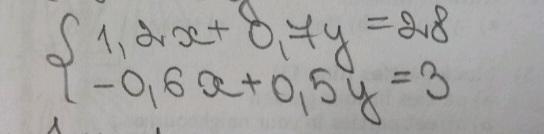 1,2x + 0,7y = 28
-0,6x + 0,5y = 3